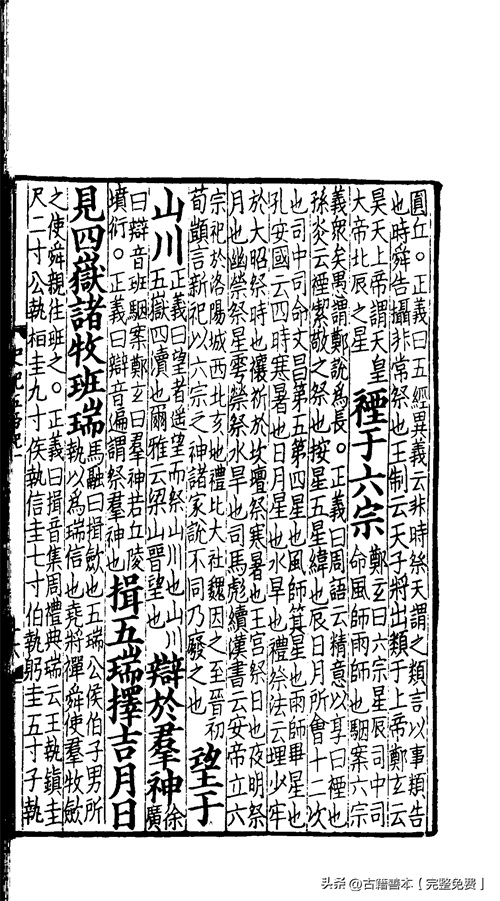 圓丘。正義曰五經異義云非時祭天謂之類言以事類告
也時舜告攝非常祭也王制云天子將出類于上帝鄭玄云
昊天上帝謂天皇
大帝北辰之星
禋于六宗
鄭玄曰六宗星辰司中司
命風師雨師也駰案六宗
義衆矣愚謂鄭說爲長。正義曰周語云精意以享曰禋也
孫炎云禋絜敬之祭也按星五星緯也辰日月所會十二次
也司中司命文昌第五第四星也風師箕星也雨師畢星也
孔安國云四時寒暑也日月星也水旱也禮祭法云埋少牢
於大昭祭時也禳祈於坎壇祭寒暑也王宮祭日也夜明祭
月也幽禜祭星雩禜祭水旱也司馬彪續漢書云安帝立六
宗祀於洛陽城西北亥地禮比大社魏因之至晉初
荀顗言新祀以六宗之神諸家說不同乃廢之也
望于
山川
正義曰望者遥望而祭山川也山川
五嶽四瀆也爾雅云梁山晉望也
辯於羣神
徐
廣
曰辯音班駰案鄭玄曰羣神若丘陵
墳衍。正義曰辯音遍謂祭羣神也
揖五瑞擇吉月日
見四嶽諸牧班瑞
馬融曰揖歛也五瑞公侯伯子男所
執以爲瑞信也堯將禪舜使羣牧歛
之使舜親往班之。正義曰揖音集周禮典端云王執鎮圭
尺二寸公執桓圭九寸侯執信圭七寸伯執躬圭五寸子執
头条@古籍善本【完整免费】